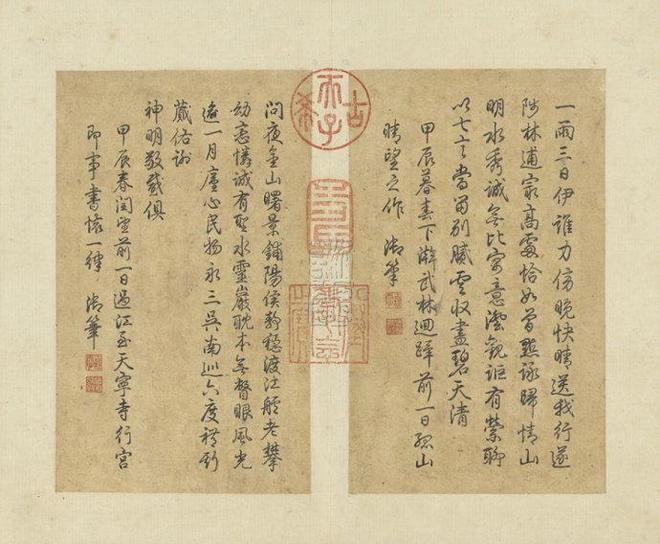 一雨三日伊誰力傍晚快晴送我行遂
陟林逋家高處恰如曾點詠歸情山
明水秀誠無比寓意澄觀詎有縈聊
以七言當留別賸雲收盡碧天清
甲辰暮春下澣武林迴蹕前一日孤山
晴望之作 御筆
古希天子
問夜金山曙景鋪陽侯靜穩渡江艫老攀
幼恋憐誠有聖水靈巖耽本無瞥眼風光
一月廑心民物永三吳南巡六度禮斯
蕆佑謝
神明敬感俱
甲辰春閏望前一日過江至天寧寺行宮
即事書懷一律 御筆